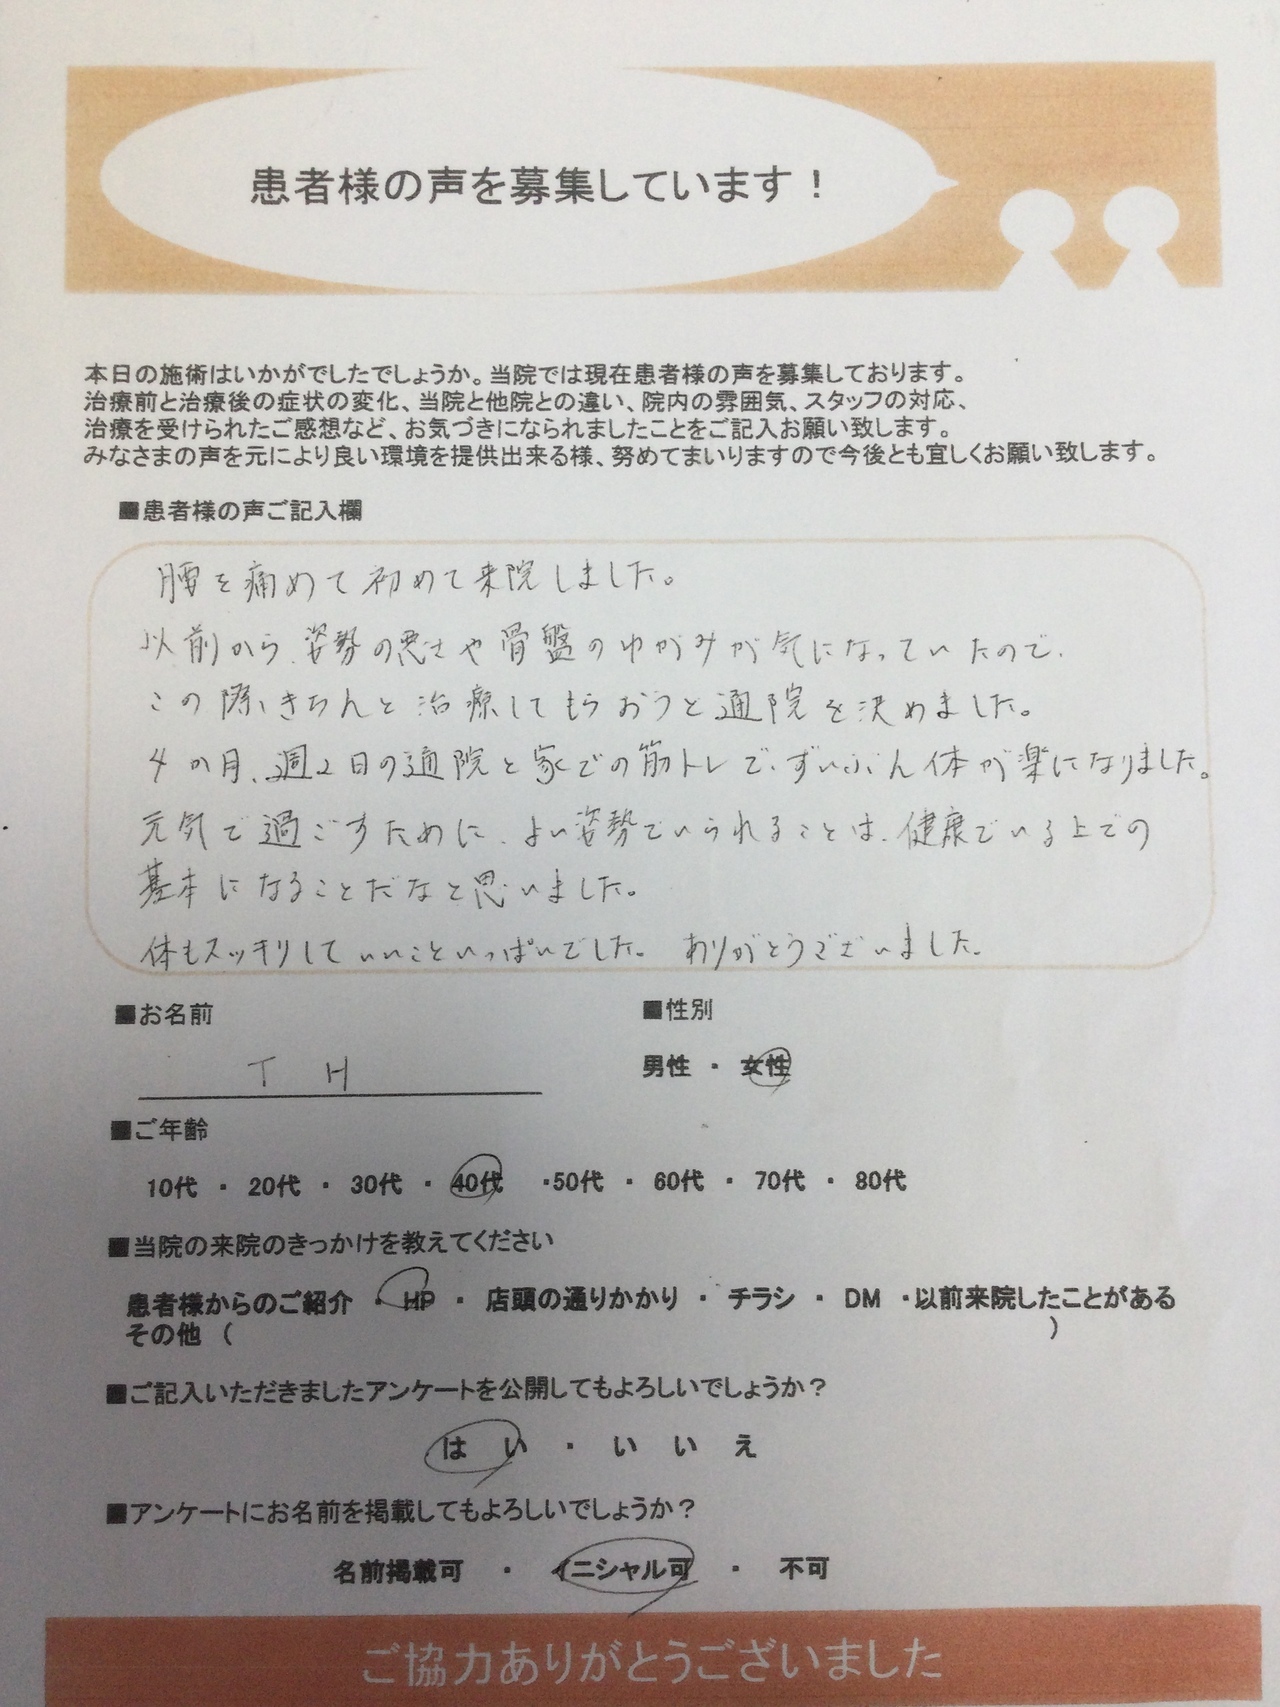 患者様の声を募集しています！
本日の施術はいかがでしたでしょうか。当院では現在患者様の声を募集しております。
治療前と治療後の症状の変化、当院と他院との違い、院内の雰囲気、スタッフの対応、
治療を受けられたご感想など、お気づきになられましたことをご記入お願い致します。
みなさまの声を元により良い環境を提供出来る様、努めてまいりますので今後とも宜しくお願い致します。
■患者様の声ご記入欄
腰を痛めて初めて来院しました。
以前から、姿勢の悪さや骨盤のゆがみが気になっていたので、
この際、きちんと治療してもらおうと通院を決めました。
4か月、週2日の通院と家での筋トレで、ずいぶん体が楽になりました。
元気で過ごすために、よい姿勢でいられることは、健康でいる上での
基本になることだなと思いました。
体もスッキリしていいこといっぱいでした。 ありがとうございました。
■お名前 ■性別
T H 男性 ・ 女性
■ご年齢
10代 ・ 20代 ・ 30代 ・ 40代 ・50代 ・ 60代 ・ 70代 ・ 80代
■当院の来院のきっかけを教えてください
患者様からのご紹介 ・ HP ・ 店頭の通りかかり ・ チラシ ・ DM ・以前来院したことがある
その他 （ ）
■ご記入いただきましたアンケートを公開してもよろしいでしょうか？
はい ・ いいえ
■アンケートにお名前を掲載してもよろしいでしょうか？
名前掲載可 ・ イニシャル可 ・ 不可
ご協力ありがとうございました